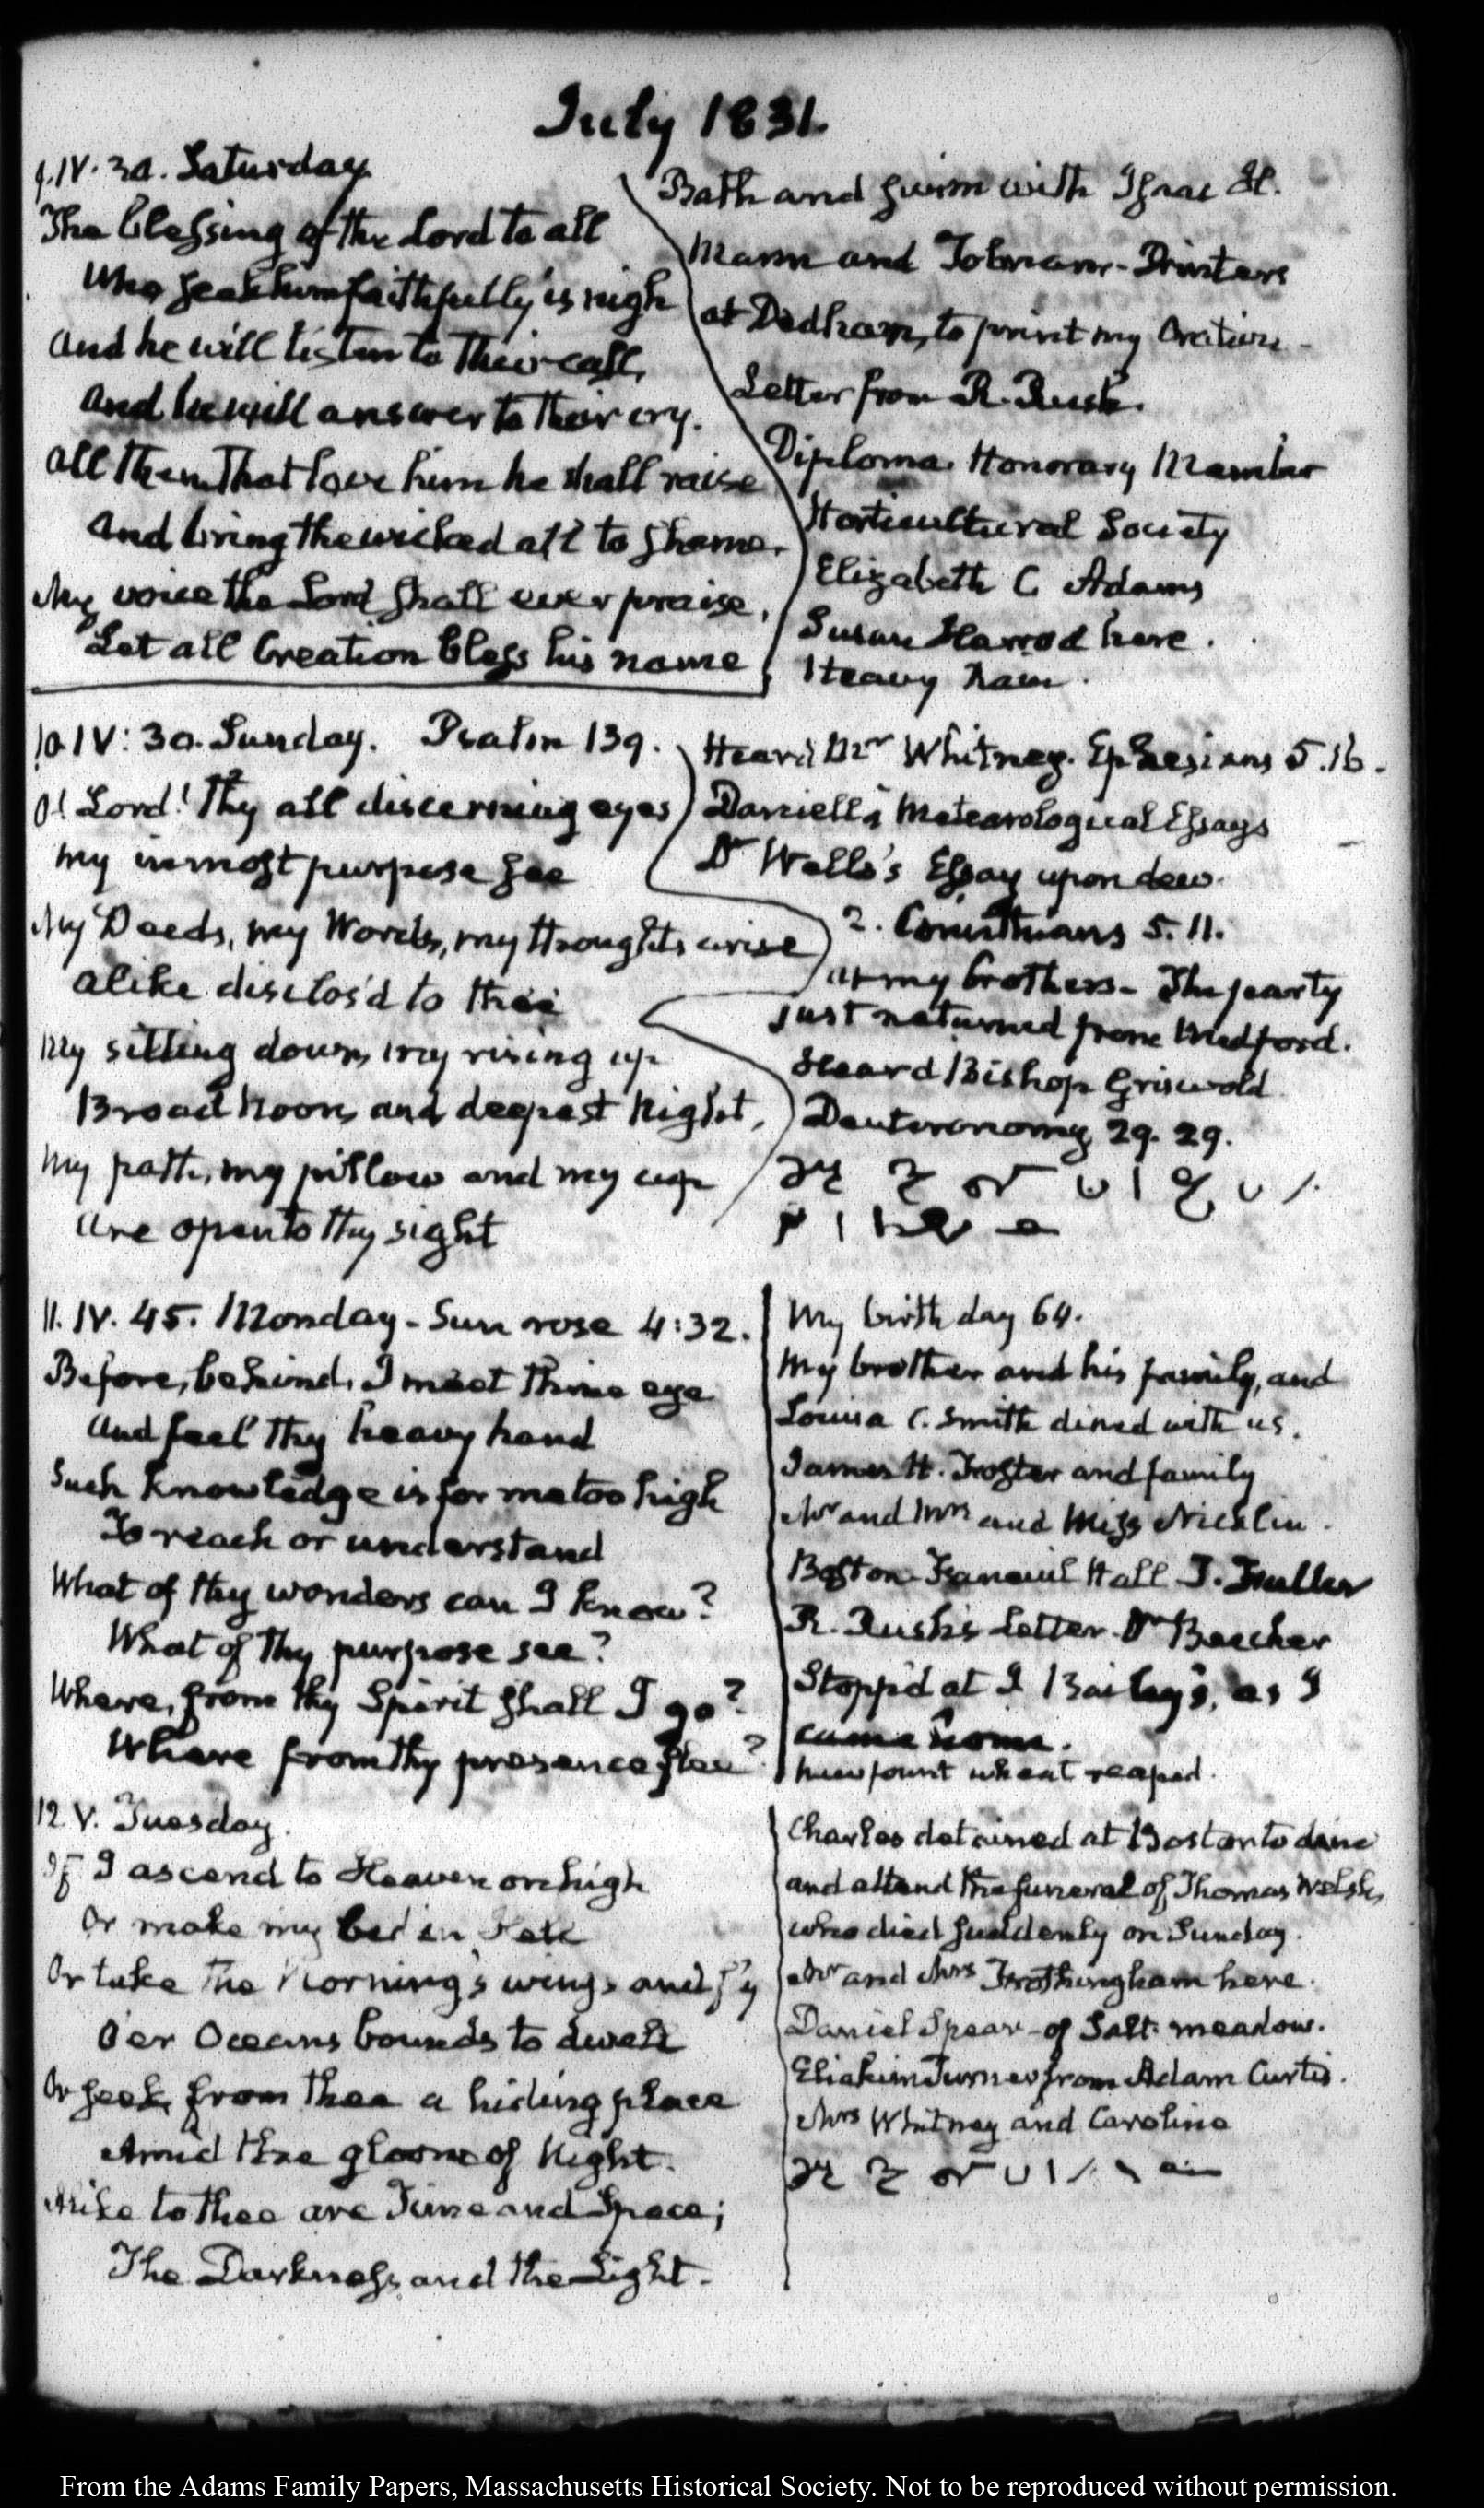 July 1831.
9. IV. 30. Saturday
The blessing of the Lord to all
Who seek him faithfully is nigh
And he will listen to their call,
And he will answer to their cry.
All them that love him he shall raise
And bring the wicked all to shame.
My voice the Lord shall ever praise,
Let all Creation bless his name
Bath and swim with Isaac H.
Mann and Tolman - Printers
at Dedham, to print my Oration -
Letter from R. Rush.
Diploma. Honorary Member
Horticultural Society
Elizabeth C. Adams
Susan Harrod here.
Heavy Rain.
10. IV: 30. Sunday. Psalm 139.
O! Lord! Thy all discerning eyes
My inmost purpose see
My Deeds, my Words, my thoughts arise
Alike disclos'd to thee
My sitting down, my rising up
Broad Noon, and deepest Night,
My path, my pillow and my cup
Are open to thy sight
Heard Mr Whitney. Ephesians 5.16.
Daniell's Meteorological Essays
Dr Wells's Essay upon dew.
2. Corinthians 5. 11.
at my brothers - The party
just returned from Medford.
Heard Bishop Griswold
Deuteronomy 29. 29.
11. IV. 45. Monday - Sun rose 4:32.
Before, behind, I meet thine eye
And feel thy heavy hand
Such knowledge is for me too high
To reach or understand
What of thy wonders can I know?
What of thy purpose see?
Where, from thy Spirit shall I go?
Where from thy presence flee?
My birth day 64.
My brother and his family, and
Louisa C. Smith dined with us.
James H. Foster and family
Mr and Mrs and Miss Nicklin.
Boston Faneuil Hall T. Fuller
R. Rush's Letter. Dr Beecher
Stopp'd at J Bailey's, as I
came home.
wheat reaped.
12. V. Tuesday.
If I ascend to Heaven on high
Or make my bed in Hell
Or take the Morning's wings and fly
O'er Oceans bounds to dwell
Or seek from thee a hiding place
Amid the gloom of Night.
Alike to thee are Time and Space;
The Darkness, and the Light.
Charles detained at Boston to dine
and attend the funeral of Thomas Welsh,
who died suddenly on Sunday.
Mr and Mrs Frothingham here.
Daniel Spear - of Salt meadow.
Eliakim Turner from Adam Curtis.
Mrs Whitney and Caroline
From the Adams Family Papers, Massachusetts Historical Society. Not to be reproduced without permission.